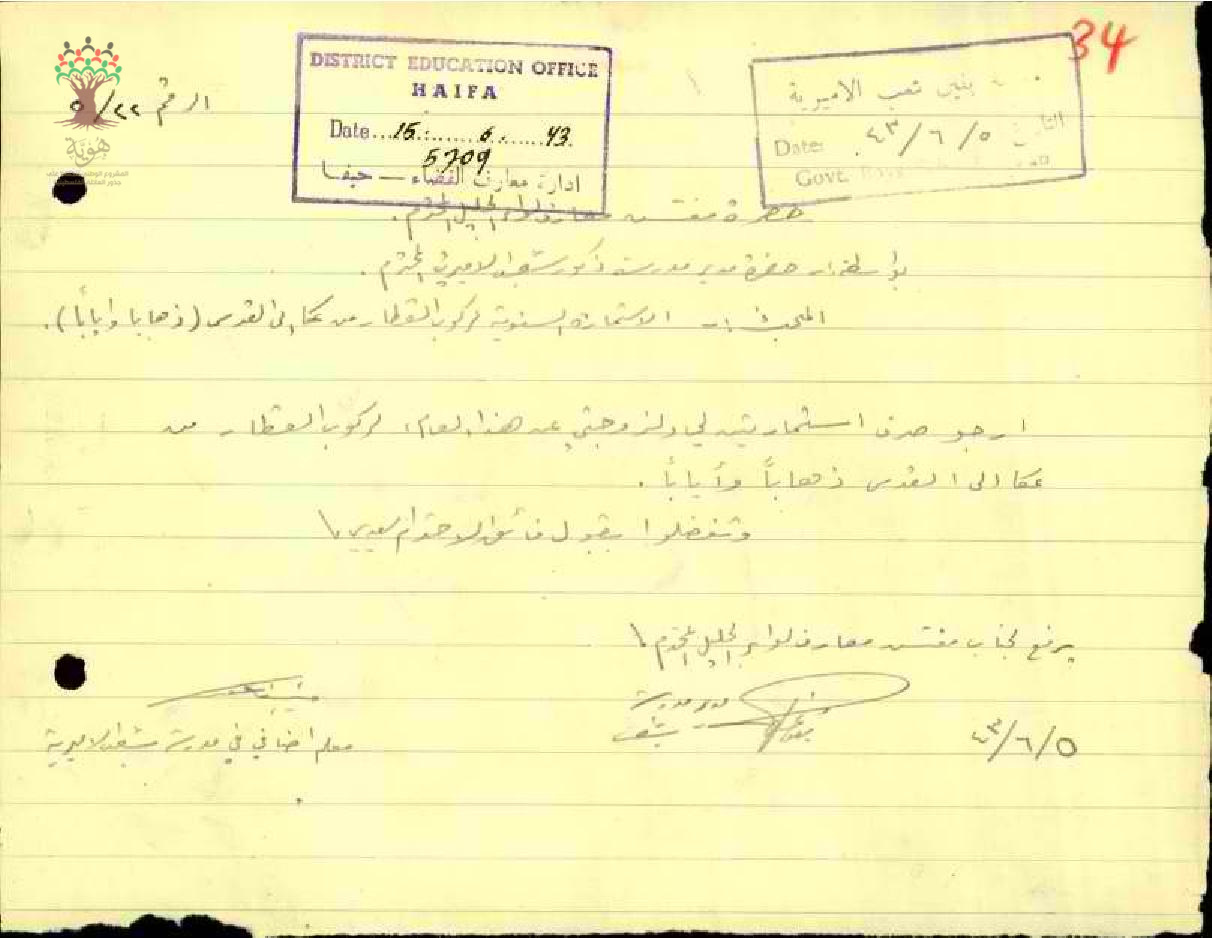 34
DISTRICT EDUCATION OFFICE
HAIFA
Date...15.:......6.:......43.
5709
ادارة معارف القضاء — حيفا
بنين شعب الاميرية
التاريخ
Date: ٤٣/٦/٥
Govt.
الرقم ٥/٢٢
هوية
حضرة مفتش معارف لواء الجليل المحترم.
بواسطة :- حضرة مدير مدرسة ذكور شعب الاميرية المحترم.
المبحث :- الاستمارة السنوية لركوب القطار من عكا الى القدس (ذهابا وايابا).
ارجو صرف استمارتين لي ولزوجتي عن هذا العام، لركوب القطار من
عكا الى القدس ذهاباً وأياباً.
وتفضلوا بقبول فائق الاحترام سيدي \
يرفع لجناب مفتش معارف لواء الجليل المحترم \
مدير مدرسة
شعب
٤٣/٦/٥
معلم اضافي في مدرسة شعب الاميرية